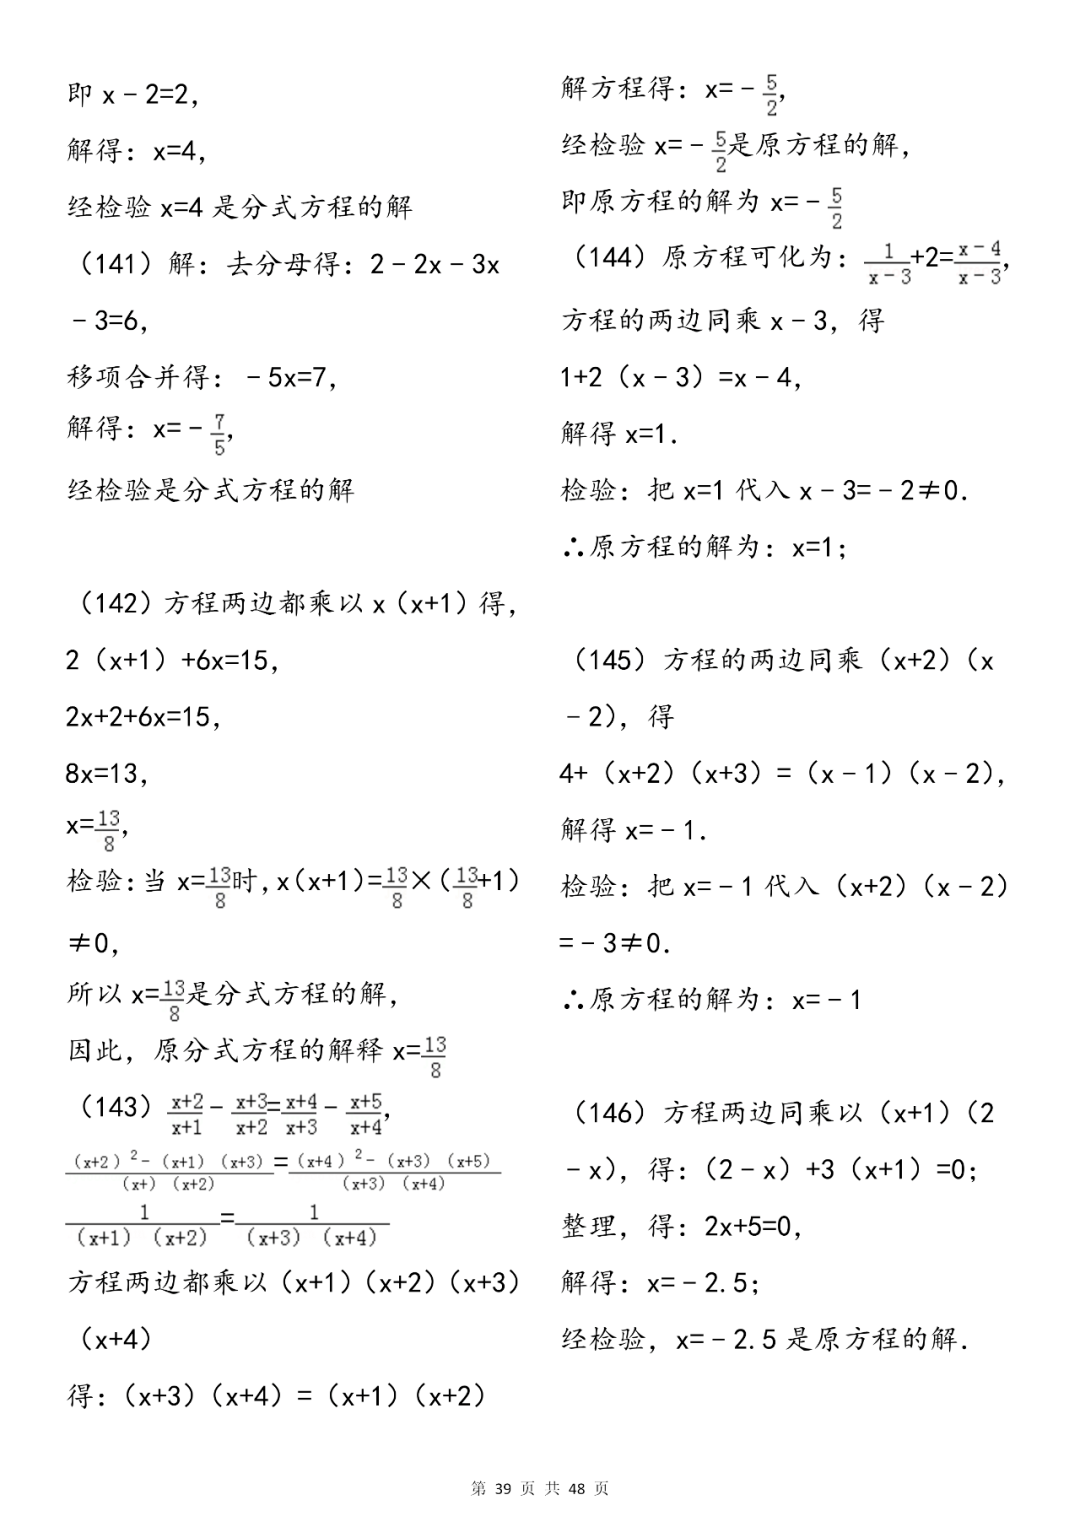 即 x－2=2，
解得：x=4，
经检验 x=4 是分式方程的解
（141）解：去分母得：2－2x－3x
－3=6，
移项合并得：－5x=7，
解得：x=－7/5，
经检验是分式方程的解
（142）方程两边都乘以 x（x+1）得，
2（x+1）+6x=15，
2x+2+6x=15，
8x=13，
x=13/8，
检验：当 x=13/8时，x（x+1）=13/8×（13/8+1）
≠0，
所以 x=13/8是分式方程的解，
因此，原分式方程的解释 x=13/8
（143）(x+2)/(x+1)－(x+3)/(x+2)=(x+4)/(x+3)－(x+5)/(x+4)，
((x+2)²－(x+1)(x+3))/((x+)(x+2))=((x+4)²－(x+3)(x+5))/((x+3)(x+4))
1/((x+1)(x+2))=1/((x+3)(x+4))
方程两边都乘以（x+1）（x+2）（x+3）
（x+4）
得：（x+3）（x+4）=（x+1）（x+2）
解方程得：x=－5/2，
经检验 x=－5/2是原方程的解，
即原方程的解为 x=－5/2
（144）原方程可化为：1/(x－3)+2=(x－4)/(x－3)，
方程的两边同乘 x－3，得
1+2（x－3）=x－4，
解得 x=1．
检验：把 x=1 代入 x－3=－2≠0．
∴原方程的解为：x=1；
（145）方程的两边同乘（x+2）（x
－2），得
4+（x+2）（x+3）=（x－1）（x－2），
解得 x=－1．
检验：把 x=－1 代入（x+2）（x－2）
=－3≠0．
∴原方程的解为：x=－1
（146）方程两边同乘以（x+1）（2
－x），得：（2－x）+3（x+1）=0；
整理，得：2x+5=0，
解得：x=－2.5；
经检验，x=－2.5 是原方程的解．
第 39 页 共 48 页